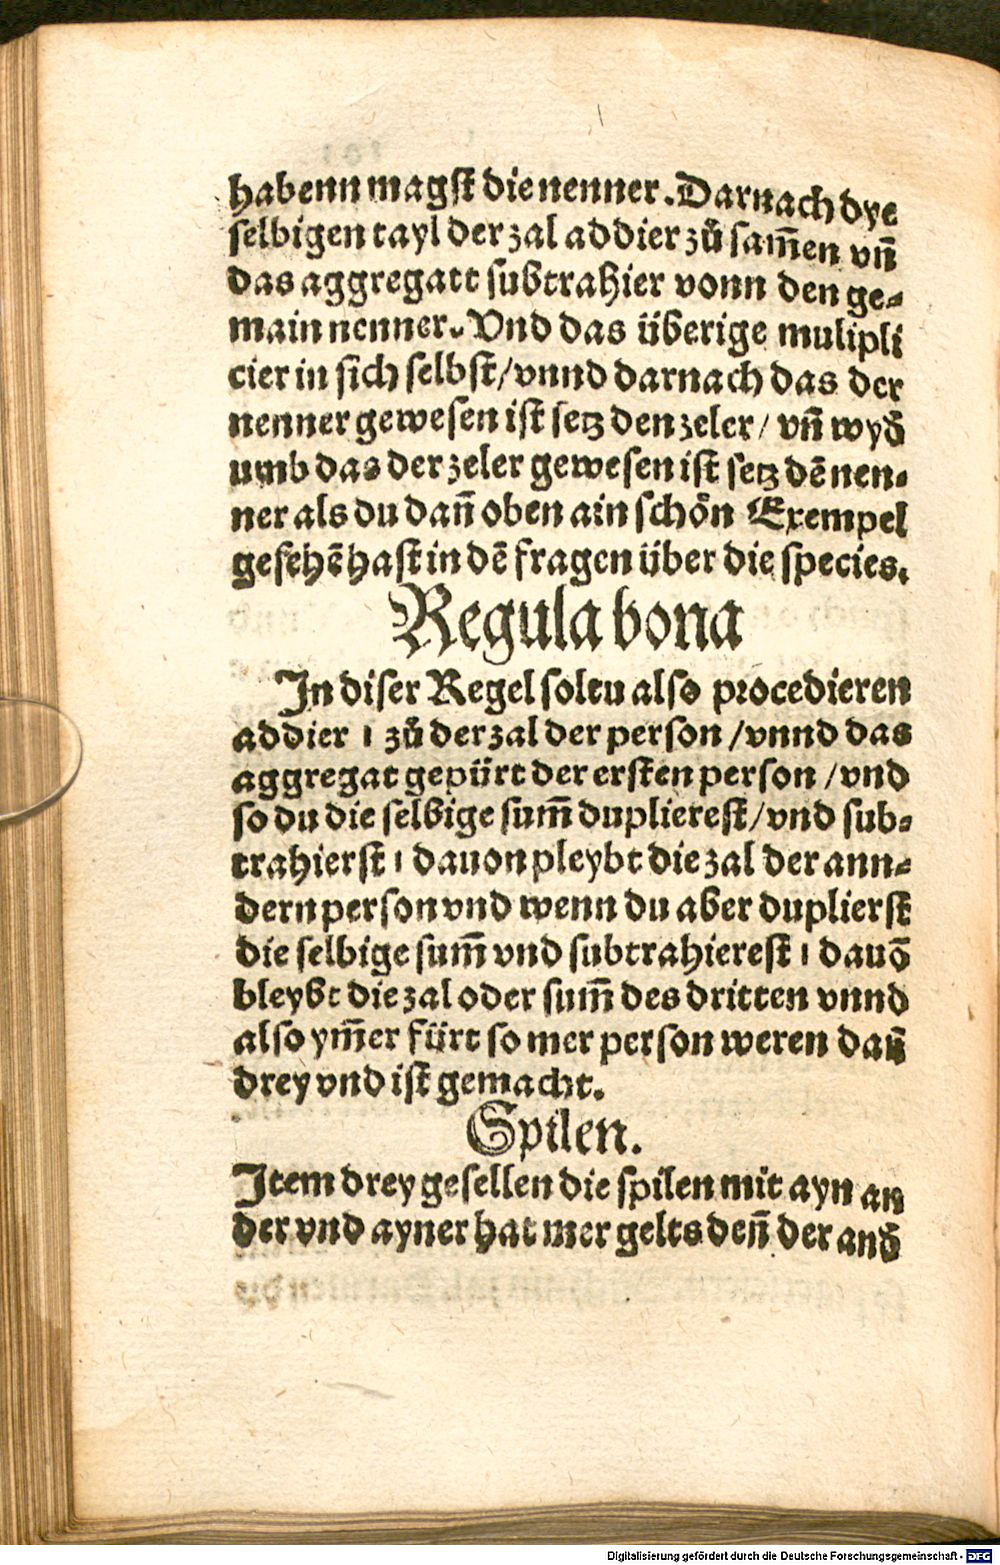 habenn magst die nenner. Darnach dye
selbigen tayl der zal addier zů sam̃en vñ
das aggregatt subtrahier vonn den ge-
main nenner. Vnd das überige mulipli
cier in sich selbst/vnnd darnach das der
nenner gewesen ist setz den zeler/ vñ wyd̃
umb das der zeler gewesen ist setz dẽ nen-
ner als du dañ oben ain schön Exempel
gesehẽ hast in dẽ fragen über die species.
Regula bona
In diser Regel soltu also procedieren
addier 1 zů der zal der person /vnnd das
aggregat gepürt der ersten person /vnd
so du die selbige sum̃ duplierest/vnd sub-
trahierst 1 dauon pleybt die zal der ann-
dern person vnd wenn du aber duplierst
die selbige sum̃ vnd subtrahierest 1 dauõ
bleybt die zal oder sum̃ des dritten vnnd
also ym̃er fürt so mer person weren dañ
drey vnd ist gemacht.
Spilen.
Item drey gesellen die spilen mit ayn an
der vnd ayner hat mer gelts deñ der and̃
Digitalisierung gefördert durch die Deutsche Forschungsgemeinschaft - DFG